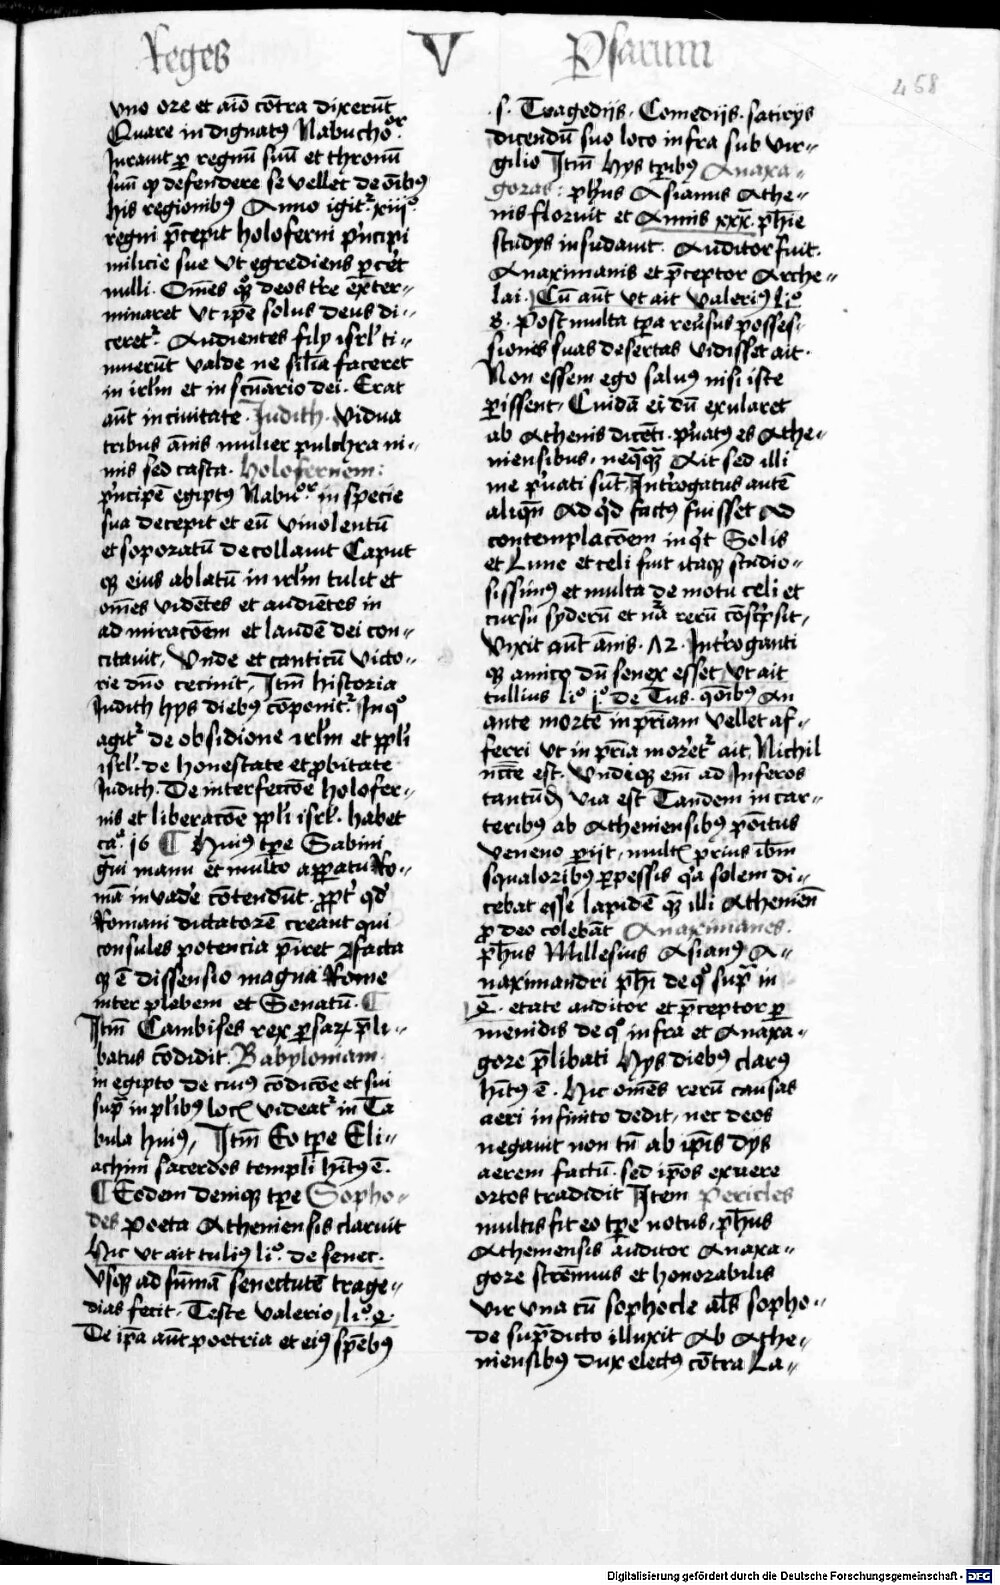 Reges V Psarum
458
vno ore et aīo cōtra dixerūt
Quare indignatꝰ Nabuchoͦr.
Jurauit ꝑ regnū suū et thronū
suū ꝙ defendere se vellet de oībꝰ
his regionibꝰ Anno igitᷣ xiijͦ.
regni p̄cepit holoferni pⁱncipi
milicie sue vt egrediens ꝑceret
nulli. Om̄es qͦꝫ deos tre exter-
minaret vt ip̄e solus deus di-
ceretᷣ. Audientes filij isrl̓ ti-
muerūt valde ne sil̄ia faceret
in irl̓m et in sc̄uario dei. Erat
aūt in ciuitate. Judith. vidua
tribus ānis mulier pulchra ni-
mis sed casta. Holofernem:
pⁱncipē egiptꝰ Nabuͦr. in specie
sua decepit et eū vinolentū
et soporatū decollauit Caput
qꝫ eius ablatū in irl̓m tulit et
om̄es vidētes et audiētes in
admiracōem et laudē dei con-
citauit, Vnde et canticū victo-
rie dn̄o cecinit, Itm̄ historia
Judith hys diebꝰ cōponitᷣ In qͦ
agitᷣ de obsidione irl̓m et ppl̓i
isrl̓. de honestate et ꝓbitate
Judith. De interfectōe holofer-
nis et liberacōe ppl̓i isrl̓. habet
caͣ. 16 ¶ Huiꝰ tp̄e Sabini
gͣui manu et multo apparatu Ro-
mā inuade cōtendūt. ꝓpt̓ qd̓
Romani dictatorē creant qui
consules potencia p̄iret ⁊ facta
qꝫ ē dissensio magna Rome
inter plebem et Senatū. ¶
Itm̄ Cambises rex ꝑsaꝝ p̄li-
batus cōdidit. Babyloniam.
in egipto de cuiꝰ cōdicōe et sui
supͣ in pl̓ibꝰ locꝭ videatᷣ in Ta
bula huiꝰ, Itm̄ Eo tp̄e Eli-
achim sacerdos templi hītꝰ ē.
¶ Eodem deniqꝫ tp̄e Sopho-
des poeta Atheniensis claruit
Hic vt ait tuliꝰ liͦ. de senec.
Vsqꝫ ad sūmā senectutē trage-
dias fecit. Teste Valerio liͦ.
De ip̄a aūt poetria et eiꝰ sp̄ebꝰ
.s. Tragedijs. Comedijs. satirijs
dicendū suo loco infra sub Vir-
gilio Itm̄ hys tp̄ibꝰ Anaxa-
goras: ph̓us Asianus Athe-
nis floruit et Annis xxx. ph̄ie
studijs insudauit. Auditor fuit.
Anaximanis et p̄ceptor Arche-
lai. Cū aūt vt ait Valeriꝰ liͦ.
8. Post multa tp̄a reu̓sus posses-
siones suas desertas vidisset ait.
Non essem ego saluꝰ nisi iste
ꝑissent. Cuidā ei dū exularet
ab Athenis dicēti. pⁱuatꝰ es Athe-
niensibus. neqͣꝙͣ Ait sed illi
me pⁱuati sūt, Interrogatus autē
aliqn̄ Ad qd̓ factꝰ fuisset Ad
contemplacōem inqͥt Solis
et Lune et celi fuit itaqꝫ studio-
sissimꝰ et multa de motu celi et
cursu syderū et naͣ rerū cōscⁱpsit,
Vixit aūt ānis. 72. Introganti
qꝫ amico dū senex esset vt ait
tullius liͦ. jͦ. de Tus. qōibꝰ An
ante mortē in pr̄iam vellet af-
ferri vt in pr̄ia moretᷣ ait, Nichil
ncc̄e est. Vndiqꝫ em̄ ad Inferos
tantūdē via est Tandem in car-
teribꝰ ab Atheniensibꝰ pōitus
Veneno ꝑijt, multꝭ prius ibm̄
squaloribꝰ ꝑpessis qͥa solem di-
cebat esse lapidē qꝫ illi Athenien̄
ꝓ deo colebāt Anaximanes.
ph̓us Millesius Asianꝰ A-
naximandri ph̄i de qͦ supͣ in
e. etate auditor et p̄ceptor ꝑ
menidis de qͦ infra et Anaxa-
gore p̄libati Hys diebꝰ clarꝰ
hītꝰ ē. Hic om̄es rerū causas
aeri infinito dedit, nec deos
negauit non tn̄ ab ip̄is dijs
aerem factū. sed ip̄os ex aere
ortos tradidit Item Pericles
multis fit eo tp̄e notus, ph̓us
Atheniensis auditor Anaxa-
gore strēnuus et honorabilis
Vir vna cū sophocle als̄ sopho-
de supͣdicto illuxit Ab Athe-
niensibꝰ dux electꝰ cōtra La-
Digitalisierung gefördert durch die Deutsche Forschungsgemeinschaft - DFG